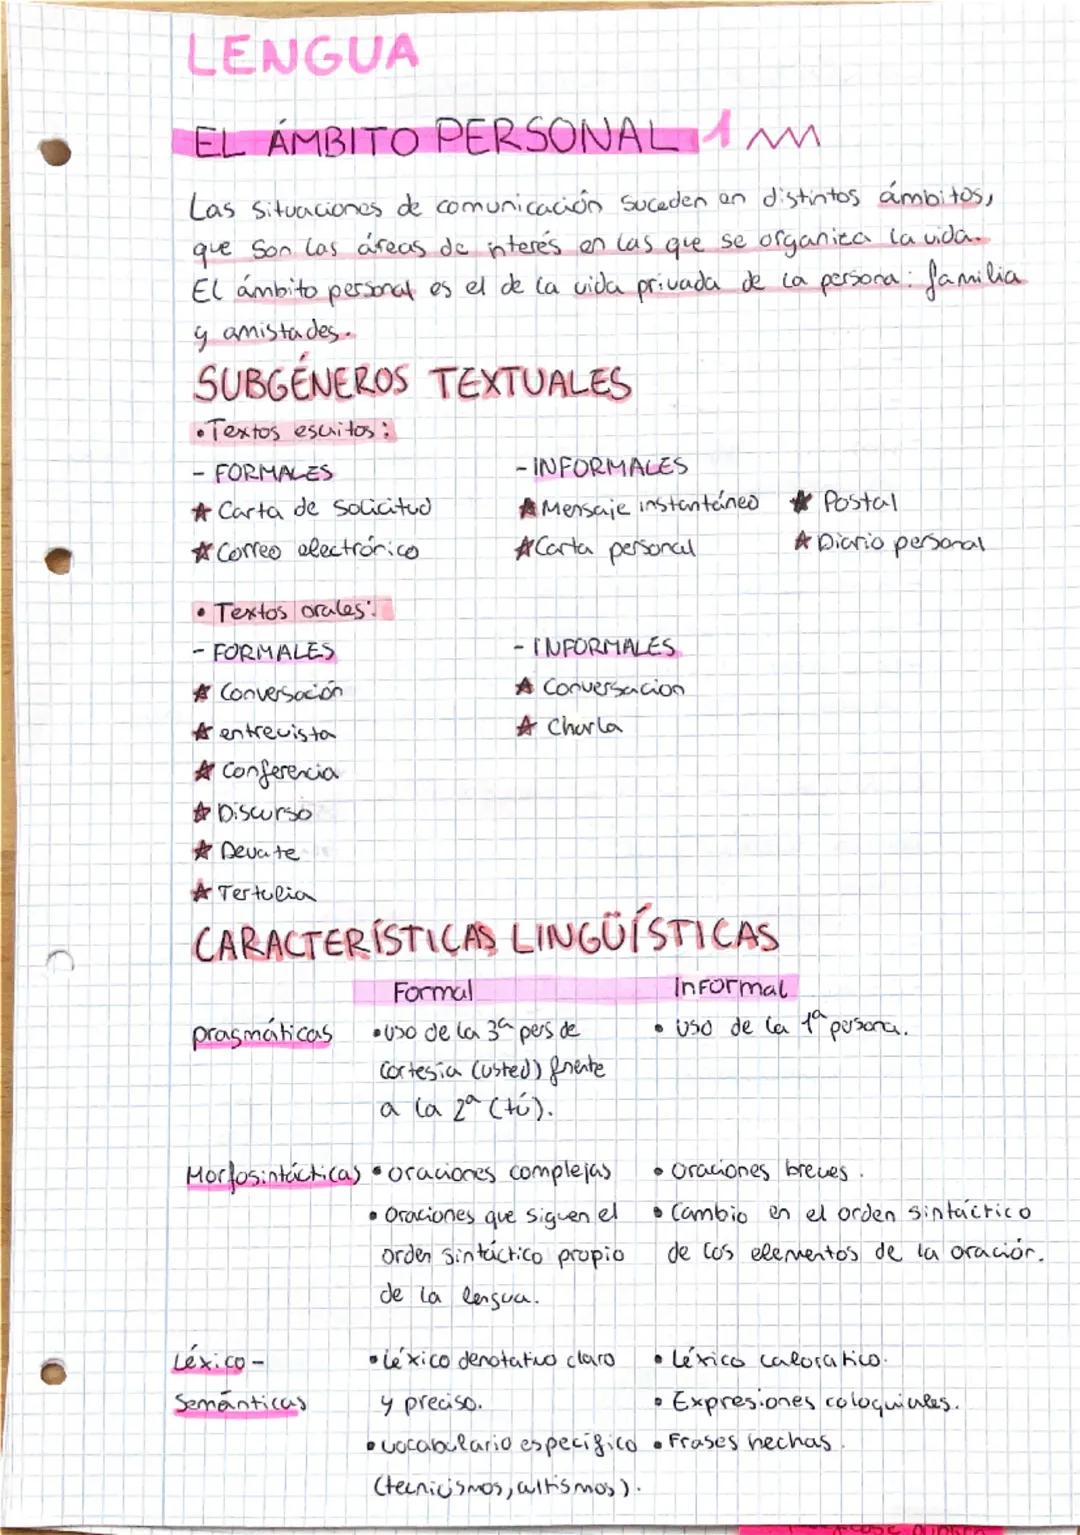 LENGUA
EL ÁMBITO PERSONAL 1
Las situaciones de comunicación suceden en distintos ámbitos,
que son las áreas de interés en las que se organiza la vida.
El ámbito personal es el de la vida privada de la persona: familia
y amistades.
SUBGÉNEROS TEXTUALES
• Textos escritos:
- FORMALES - INFORMALES
★ Carta de solicitud ★ Mensaje instantáneo ★ Postal
★ Correo electrónico ★ Carta personal ★ Diario personal
• Textos orales:
- FORMALES - INFORMALES
★ Conversación ★ Conversacion
★ entrevista ★ Charla
★ Conferencia
★ Discurso
★ Devate
★ Tertulia
CARACTERÍSTICAS LINGÜÍSTICAS
Formal informal
pragmáticas • uso de la 3ª pers de • uso de la 1ª persona.
cortesía (usted) frente
a la 2ª (tú).
Morfosintácticas • oraciones complejas • oraciones breves.
• Oraciones que siguen el • Cambio en el orden sintáctico
orden sintáctico propio de los elementos de la oración.
de la lengua.
Léxico- • Léxico denotativo claro • Léxico valorativo.
Semánticas y preciso. • Expresiones coloquiales.
• vocabulario específico • Frases hechas.
(tecnicismos, cultismos).